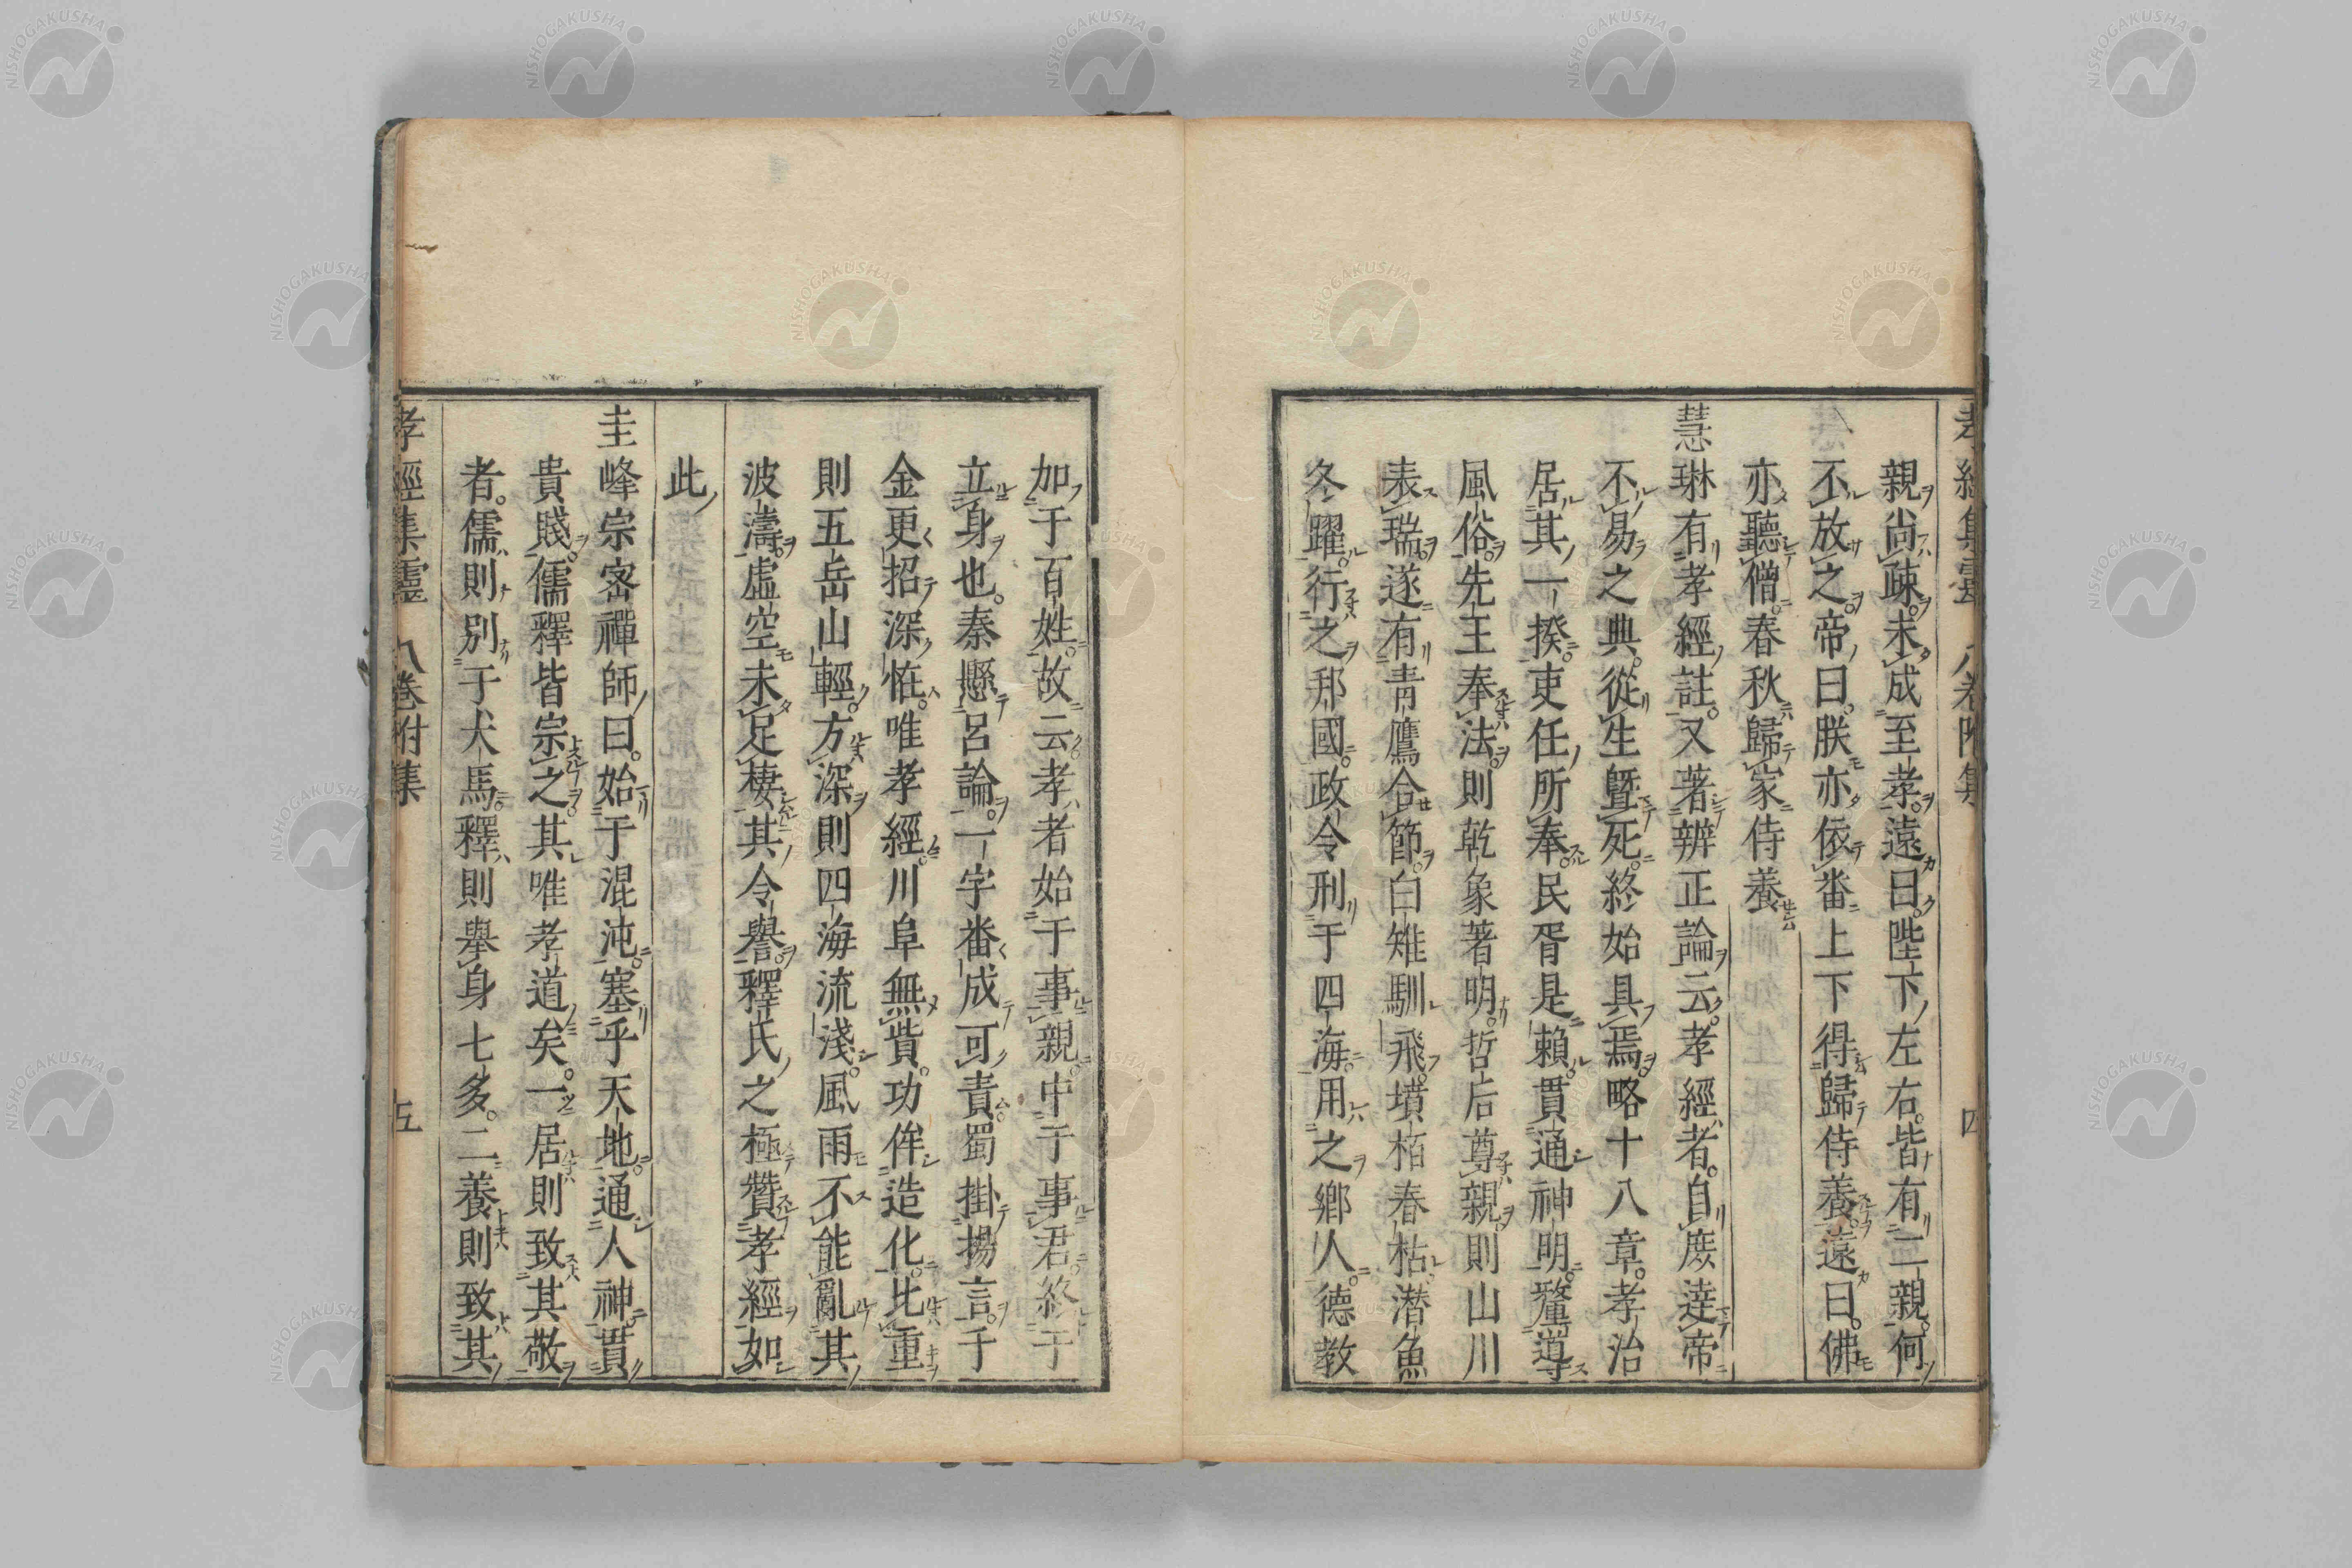 親尚疎未成至孝遠曰陛下左右皆有二親何
不放之帝曰朕亦依番上下得歸侍養遠曰佛
亦聽僧春秋歸家侍養
慧琳有孝經註又著辨正論云孝經者自庶達帝
不易之典從生暨死終始具焉略十八章孝治
居其一揆吏任所奉民胥是賴貫通神明釐導
風俗先王奉法則乾象著明哲后尊親則山川
表瑞遂有青鷹合節白雉馴飛墳栢春枯潜魚
冬躍行之邦國政令刑于四海用之鄉人德教
加于百姓故云孝者始于事親中于事君終于
立身也秦懸呂論一字番成可責蜀掛揚言千
金更招深恠唯孝經川阜無貲功侔造化比重
則五岳山輕方深則四海流淺風雨不能亂其
波濤虛空未足棲其令譽釋氏之極贊孝經如
此
圭峰宗密禪師曰始于混沌塞乎天地通人神貫
貴賤儒釋皆宗之其唯孝道矣一居則致其敬
者儒則別于犬馬釋則舉身七多二養則致其
孝經集靈 八卷附集 四
孝經集靈 八卷附集 五
NISHOGAKUSHA